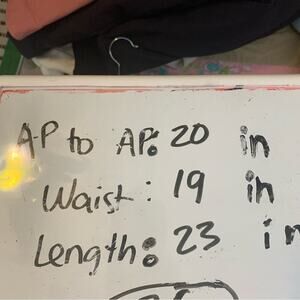 AP to AP: 20 in
Waist: 19 in
Length: 23 in